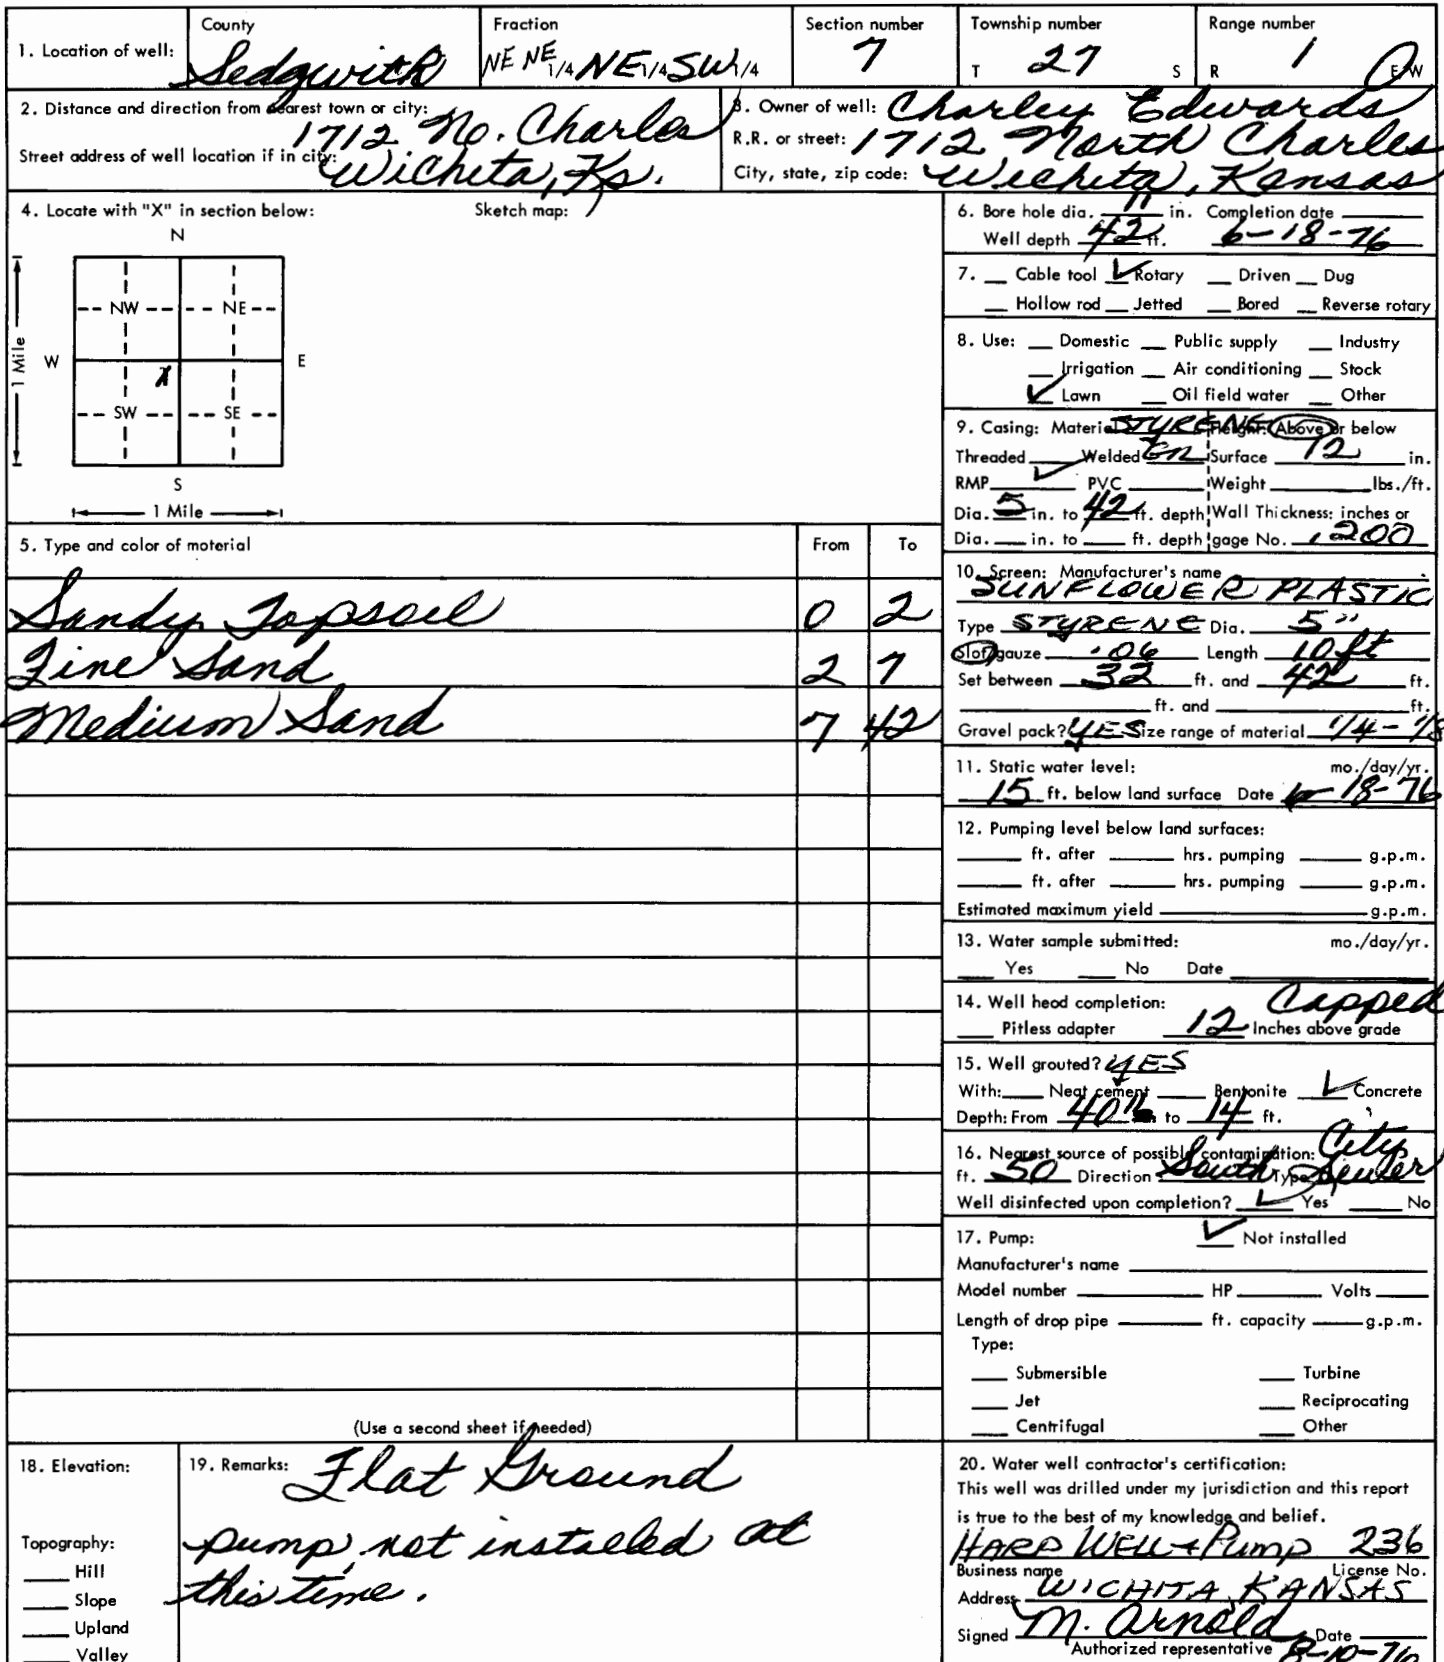 1. Location of well: County Sedgwick Fraction NE NE 1/4 NE 1/4 SW 1/4 Section number 7 Township number T 27 S Range number R 1 E/W
2. Distance and direction from nearest town or city: 1712 No. Charles
Street address of well location if in city: Wichita, Ks.
3. Owner of well: Charley Edwards
R.R. or street: 1712 North Charles
City, state, zip code: Wichita, Kansas
4. Locate with "X" in section below: Sketch map:
N
NW NE
W E
X
SW SE
S
1 Mile
1 Mile
5. Type and color of material From To
Sandy Topsoil 0 2
Fine Sand 2 7
Medium Sand 7 42
(Use a second sheet if needed)
6. Bore hole dia. 11 in. Completion date
Well depth 42 ft. 6-18-76
7. Cable tool ✓ Rotary Driven Dug
Hollow rod Jetted Bored Reverse rotary
8. Use: Domestic Public supply Industry
Irrigation Air conditioning Stock
✓ Lawn Oil field water Other
9. Casing: Material STYRENE Height: Above or below
Threaded Welded Surface 12 in.
RMP ✓ PVC Weight lbs./ft.
Dia. 5 in. to 42 ft. depth Wall Thickness: inches or
Dia. in. to ft. depth gage No. .200
10. Screen: Manufacturer's name
SUNFLOWER PLASTIC
Type STYRENE Dia. 5"
Slot/gauze .06 Length 10 ft
Set between 32 ft. and 42 ft.
ft. and ft.
Gravel pack? YES Size range of material 1/4 - 1/8
11. Static water level: mo./day/yr.
15 ft. below land surface Date 6-18-76
12. Pumping level below land surfaces:
ft. after hrs. pumping g.p.m.
ft. after hrs. pumping g.p.m.
Estimated maximum yield g.p.m.
13. Water sample submitted: mo./day/yr.
Yes No Date
14. Well head completion: Capped
Pitless adapter 12 Inches above grade
15. Well grouted? YES
With: Neat cement Bentonite ✓ Concrete
Depth: From 40" to 14 ft.
16. Nearest source of possible contamination: City
ft. 50 Direction South Type Sewer
Well disinfected upon completion? ✓ Yes No
17. Pump: ✓ Not installed
Manufacturer's name
Model number HP Volts
Length of drop pipe ft. capacity g.p.m.
Type:
Submersible Turbine
Jet Reciprocating
Centrifugal Other
18. Elevation:
Topography:
Hill
Slope
Upland
Valley
19. Remarks: Flat Ground
pump not installed at
this time.
20. Water well contractor's certification:
This well was drilled under my jurisdiction and this report
is true to the best of my knowledge and belief.
HARP WELL + Pump 236
Business name License No.
Address WICHITA, KANSAS
Signed M. Arnold Date
Authorized representative 8-10-76